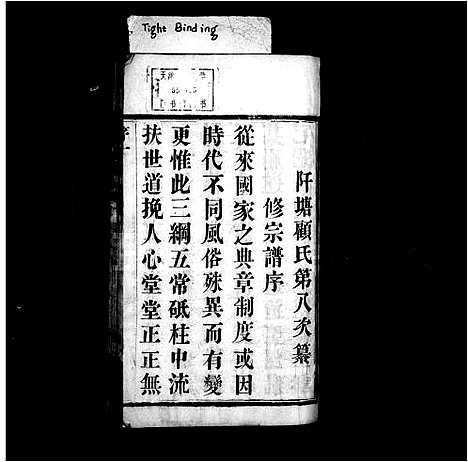 Tight Binding
阡塘顧氏第八次纂
修宗譜序
從來國家之典章制度或因
時代不同風俗殊異而有變
更惟此三綱五常砥柱中流
扶世道挽人心堂堂正正無